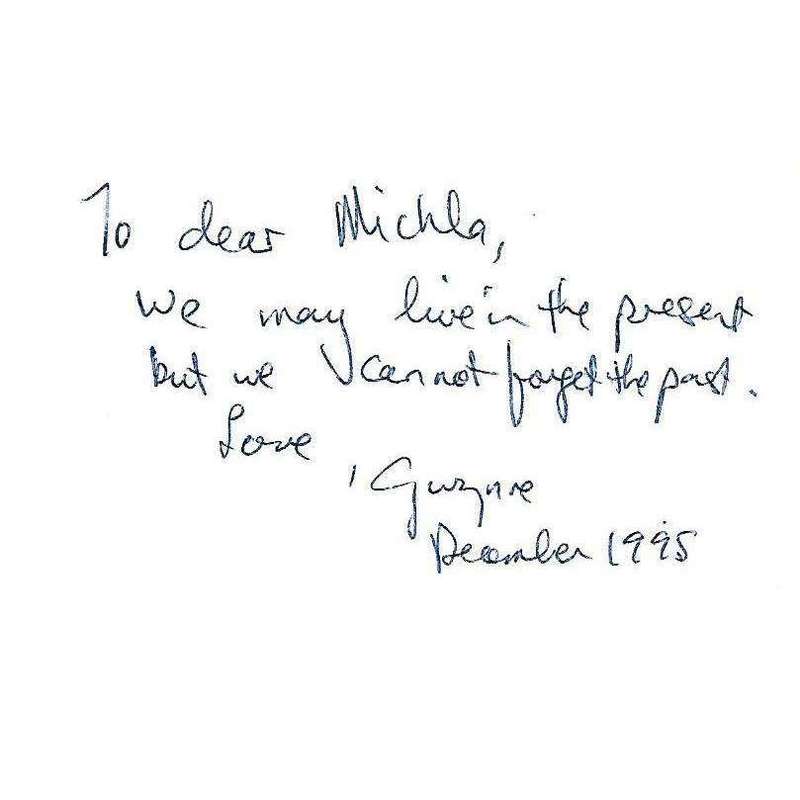 To dear Michla,
We may live in the present
but we cannot forget the past.
Love,
Gwynne
December 1995